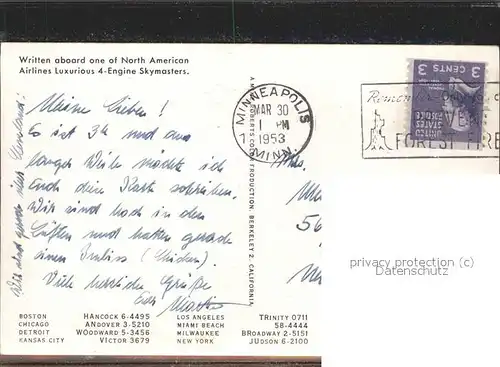 Written aboard one of North American
Airlines Luxurious 4-Engine Skymasters.
Meine Lieben!
Es ist 3h und aus
lauter Weile möchte ich
Euch diese Karte schreiben.
Wir sind hoch in den
Lüften und hatten gerade
einen Imbiss (Chicken).
Viele herzliche Grüße
Euer Martin
Wir sind gerade über Cleveland!
MINNEAPOLIS
MAR 30
1 PM
1953
MINN.
3 CENTS 3
UNITED
STATES
POSTAGE
Remember
FOREST FIRE
ROBERTS COLOR PRODUCTION, BERKELEY 2, CALIFORNIA
Mrs.
56
privacy protection (c)
Datenschutz
BOSTON HANCOCK 6-4495 LOS ANGELES TRINITY 0711
CHICAGO ANDOVER 3-5210 MIAMI BEACH 58-4444
DETROIT WOODWARD 5-3456 MILWAUKEE BROADWAY 2-5151
KANSAS CITY VICTOR 3679 NEW YORK JUDSON 6-2100